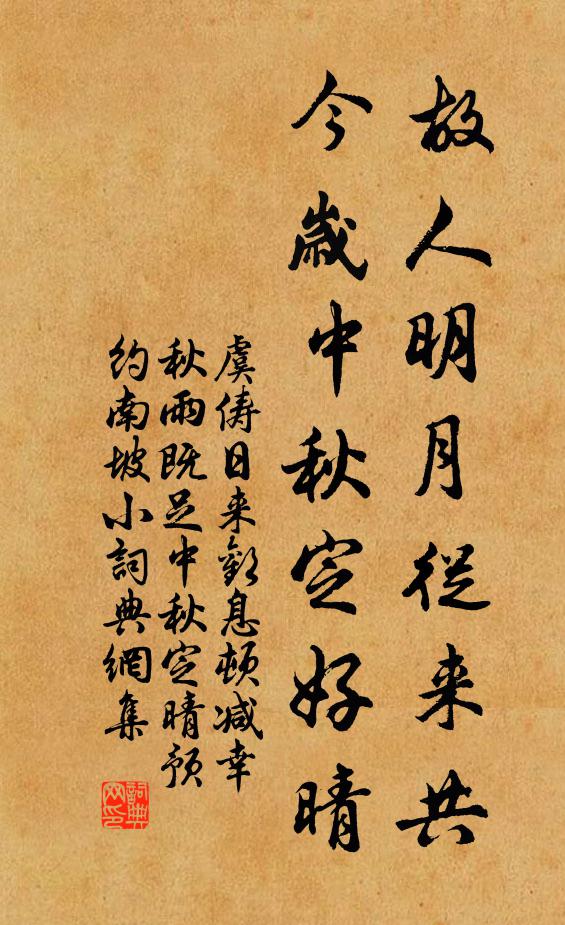 故人明月從来共
今歲中秋定好晴
虞俦日来息頓减幸
秋雨既足中秋定晴預
约南坡小詞典網集
詞典
网印